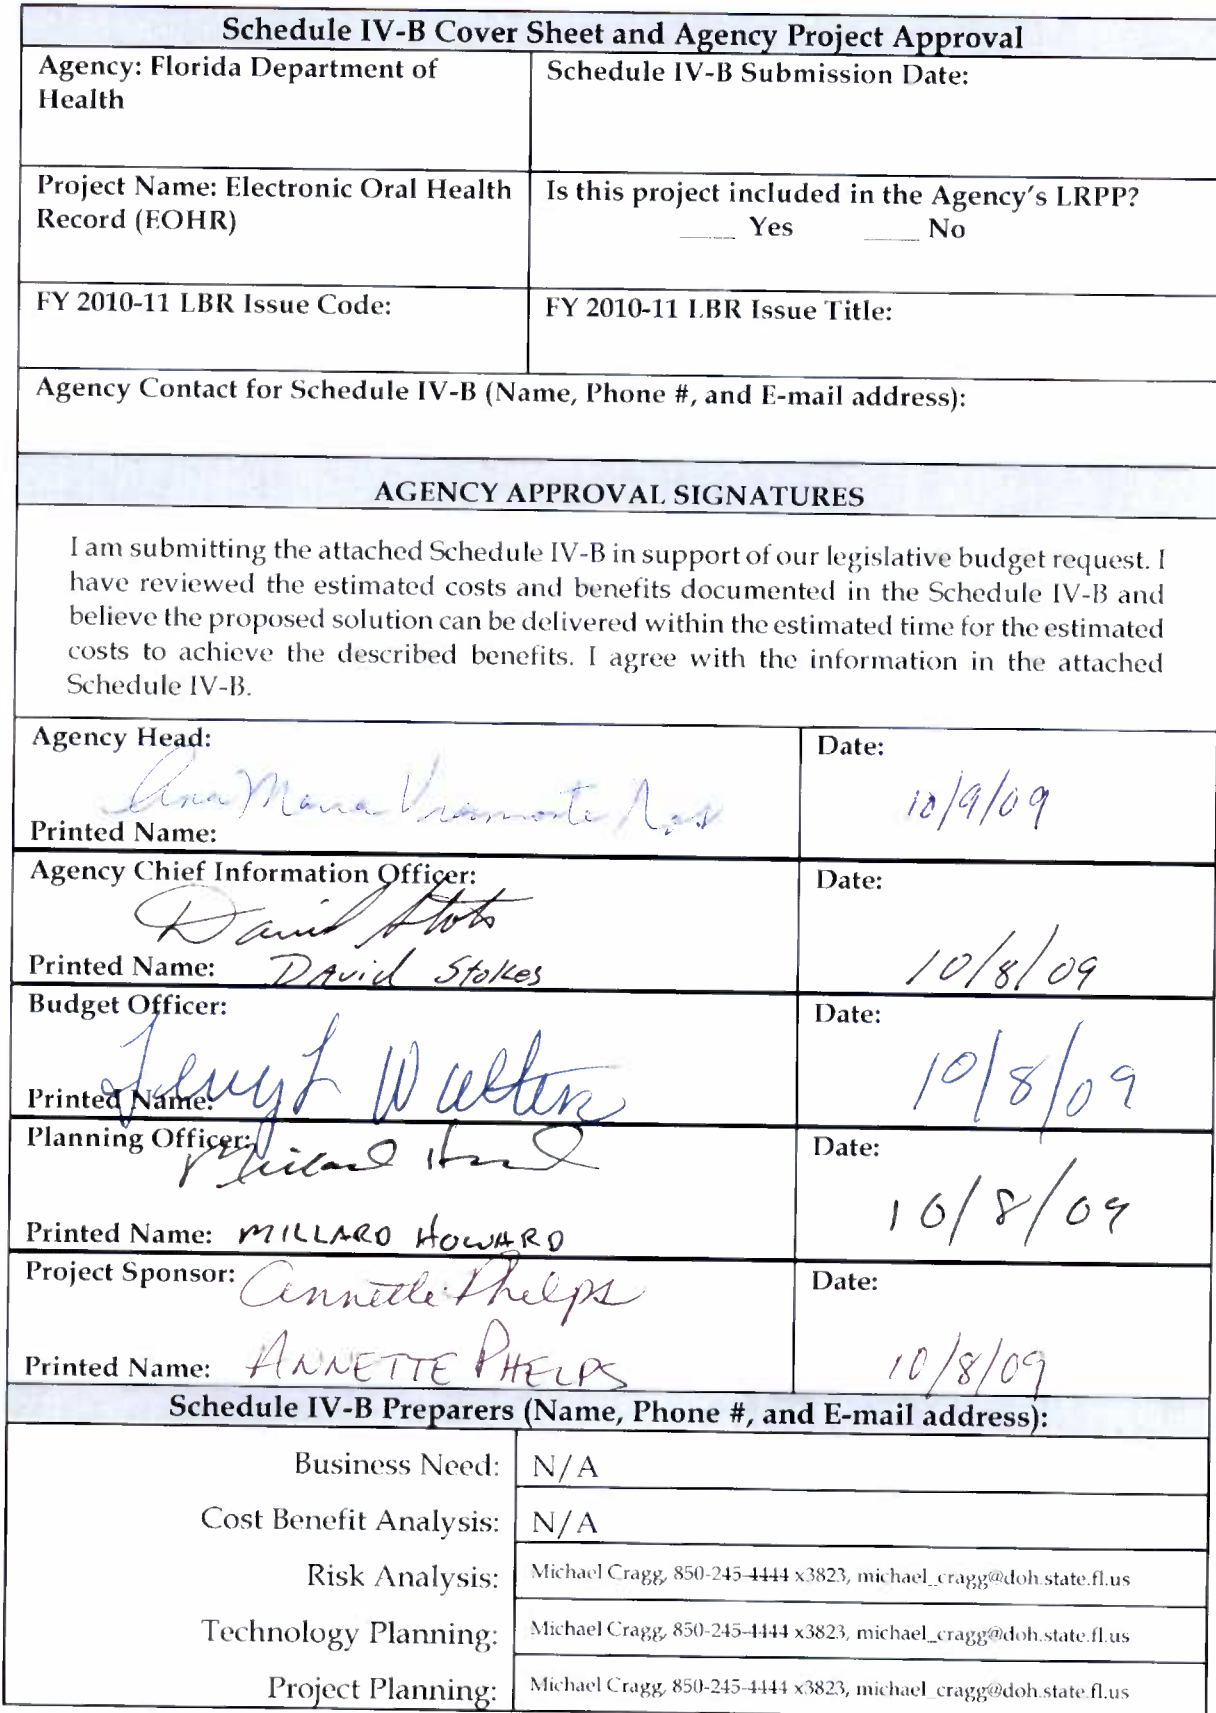 Schedule IV-B Cover Sheet and Agency Project Approval
Agency: Florida Department of
Health
Schedule IV-B Submission Date:
Project Name: Electronic Oral Health
Record (EOHR)
Is this project included in the Agency's LRPP?
____ Yes ____ No
FY 2010-11 LBR Issue Code:
FY 2010-11 LBR Issue Title:
Agency Contact for Schedule IV-B (Name, Phone #, and E-mail address):
AGENCY APPROVAL SIGNATURES
I am submitting the attached Schedule IV-B in support of our legislative budget request. I
have reviewed the estimated costs and benefits documented in the Schedule IV-B and
believe the proposed solution can be delivered within the estimated time for the estimated
costs to achieve the described benefits. I agree with the information in the attached
Schedule IV-B.
Agency Head:
Date:
Ana Maria
10/9/09
Printed Name:
Agency Chief Information Officer:
Date:
David
Printed Name: David Stokes
10/8/09
Budget Officer:
Date:
10/8/09
Printed Name:
Planning Officer:
Date:
Millard
10/8/09
Printed Name: MILLARD HOWARD
Project Sponsor: Annette Phelps
Date:
Printed Name: ANNETTE PHELPS
10/8/09
Schedule IV-B Preparers (Name, Phone #, and E-mail address):
Business Need: N/A
Cost Benefit Analysis: N/A
Risk Analysis: Michael Cragg, 850-245-4444 x3823, michael_cragg@doh.state.fl.us
Technology Planning: Michael Cragg, 850-245-4444 x3823, michael_cragg@doh.state.fl.us
Project Planning: Michael Cragg, 850-245-4444 x3823, michael_cragg@doh.state.fl.us